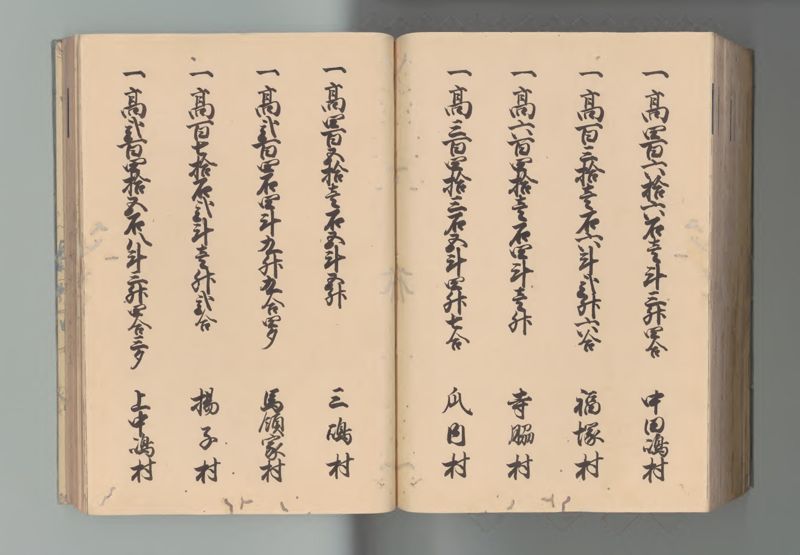 一 高四百六拾六石壱斗三升四合 中田嶋村
一 高百三拾壱石六斗弐升六合 福塚村
一 高六百四拾壱石四斗壱升 寺脇村
一 高三百四拾三石五斗四升七合 瓜内村
一 高四百五拾壱石五斗五升 三嶋村
一 高弐百四石四斗九升九合四夕 馬領家村
一 高百七拾石弐斗壱升弐合 揚子村
一 高弐百四拾五石八斗三升四合三夕 上中嶋村